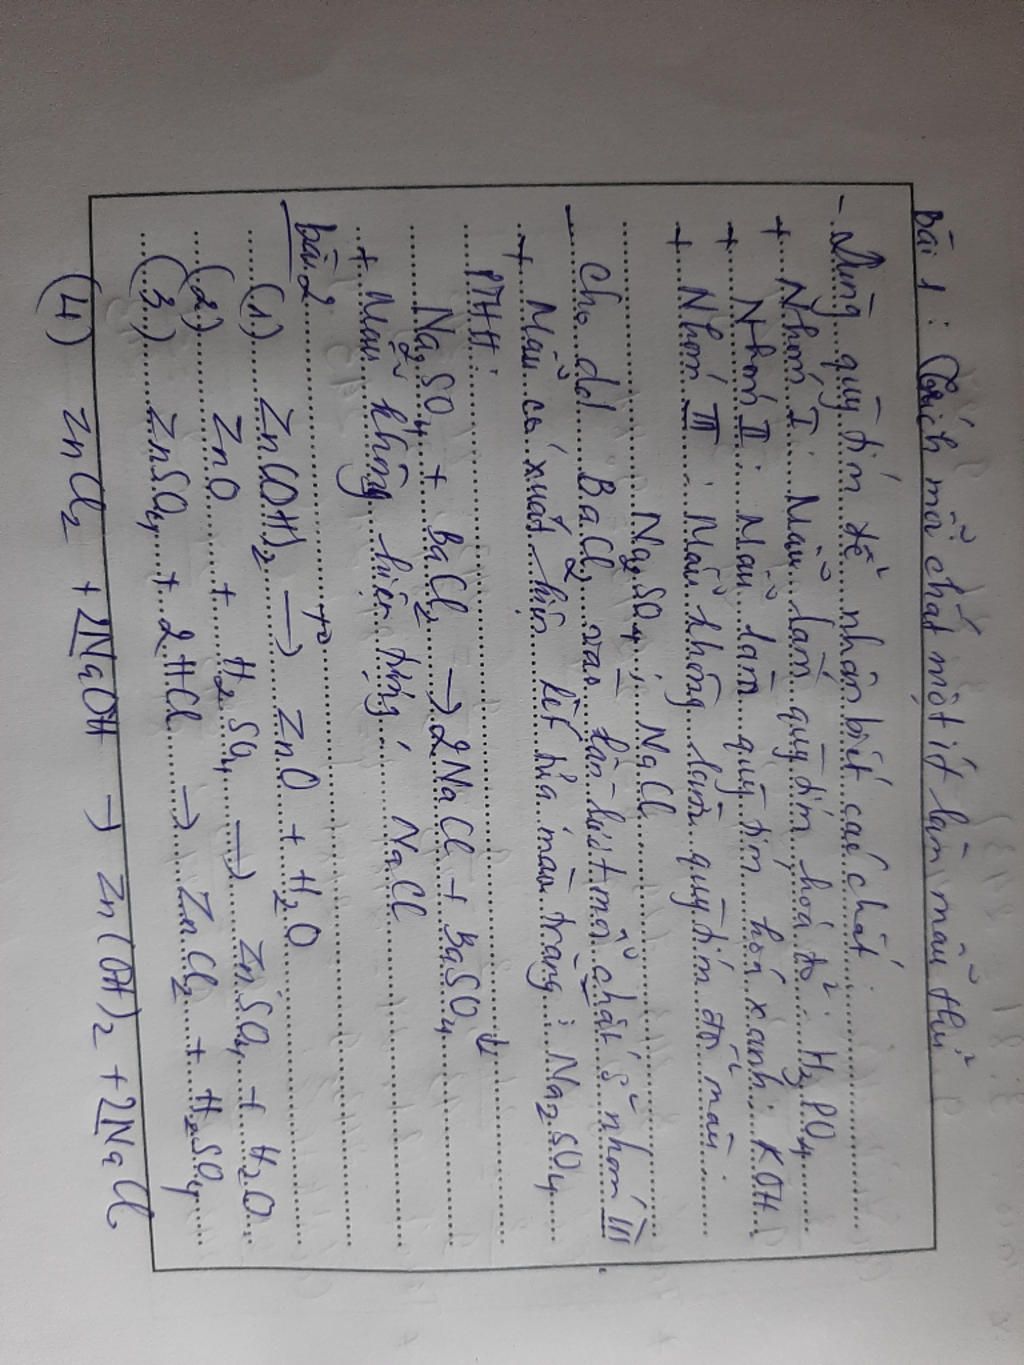 Bài 1: Trích mỗi chất một ít làm mẫu thử
- Dùng quỳ tím để nhận biết các chất:
+ Nhóm I: Mẫu làm quỳ tím hoá đỏ: H3PO4
+ Nhóm II: Mẫu làm quỳ tím hoá xanh: KOH
+ Nhóm III: Mẫu không làm quỳ tím đổi màu:
Na2SO4; NaCl
- Cho dd BaCl2 vào lần lượt mỗi chất ở nhóm III
+ Mẫu có xuất hiện kết tủa màu trắng: Na2SO4
PTHH:
Na2SO4 + BaCl2 → 2NaCl + BaSO4 ↓
+ Mẫu không hiện tượng: NaCl
bài 2
(1) Zn(OH)2 →t° ZnO + H2O
(2) ZnO + H2SO4 → ZnSO4 + H2O
(3) ZnSO4 + 2HCl → ZnCl2 + H2SO4
(4) ZnCl2 + 2NaOH → Zn(OH)2 + 2NaCl